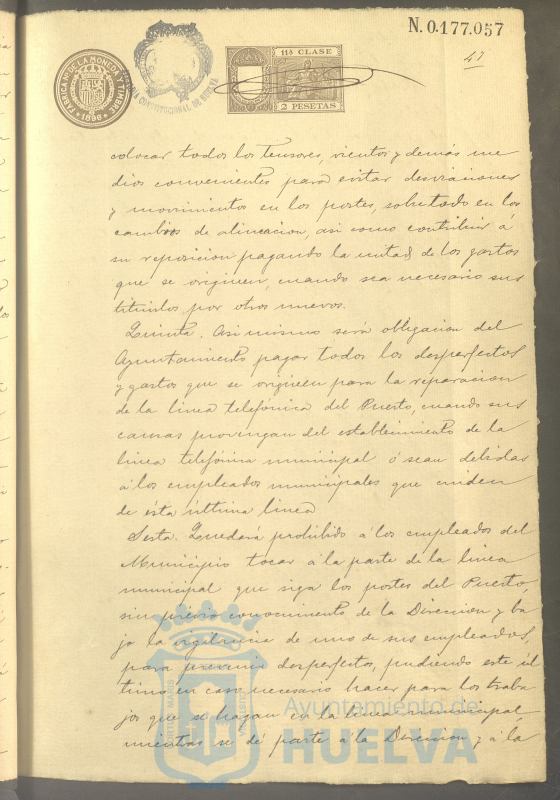 N. 0.177.057
47
FABRICA NAL DE LA MONEDA Y TIMBRE
1896
ALCALDIA CONSTITUCIONAL DE HUELVA
11ª CLASE
2 PESETAS
colocar todos los tensores, vientos y demás me
dios convenientes para evitar desviaciones
y movimientos en los postes, sobre todo en los
cambios de alineacion, asi como contribuir á
su reposicion pagando la mitad de los gastos
que se originen, cuando sea necesario sus
tituirlos por otros nuevos.
Quinta. Asi mismo será obligacion del
Ayuntamiento pagar todos los desperfectos
y gastos que se origineen para la reparacion
de la linea telefónica del Puerto, cuando sus
causas provengan del establecimiento de la
linea telefónica municipal ó sean debidas
á los empleados municipales que cuiden
de ésta última linea
Sesta. Quedará prohibido á los empleados del
Municipio tocar á la parte de la linea
municipal que siga los postes del Puerto,
sin previo conocimiento de la Direccion y ba
jo la vigilancia de uno de sus empleados,
para prevenir desperfectos, pudiendo este úl
timo en caso necesario hacer para los traba
jos que se hagan en la linea municipal,
mientras se dé parte á la Direccion y á la
Ayuntamiento de
HUELVA